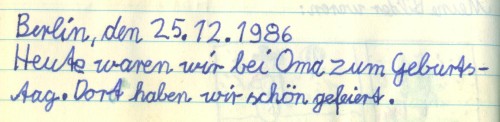 Berlin, den 25.12.1986
Heute waren wir bei Oma zum Geburts-
tag. Dort haben wir schön gefeiert.